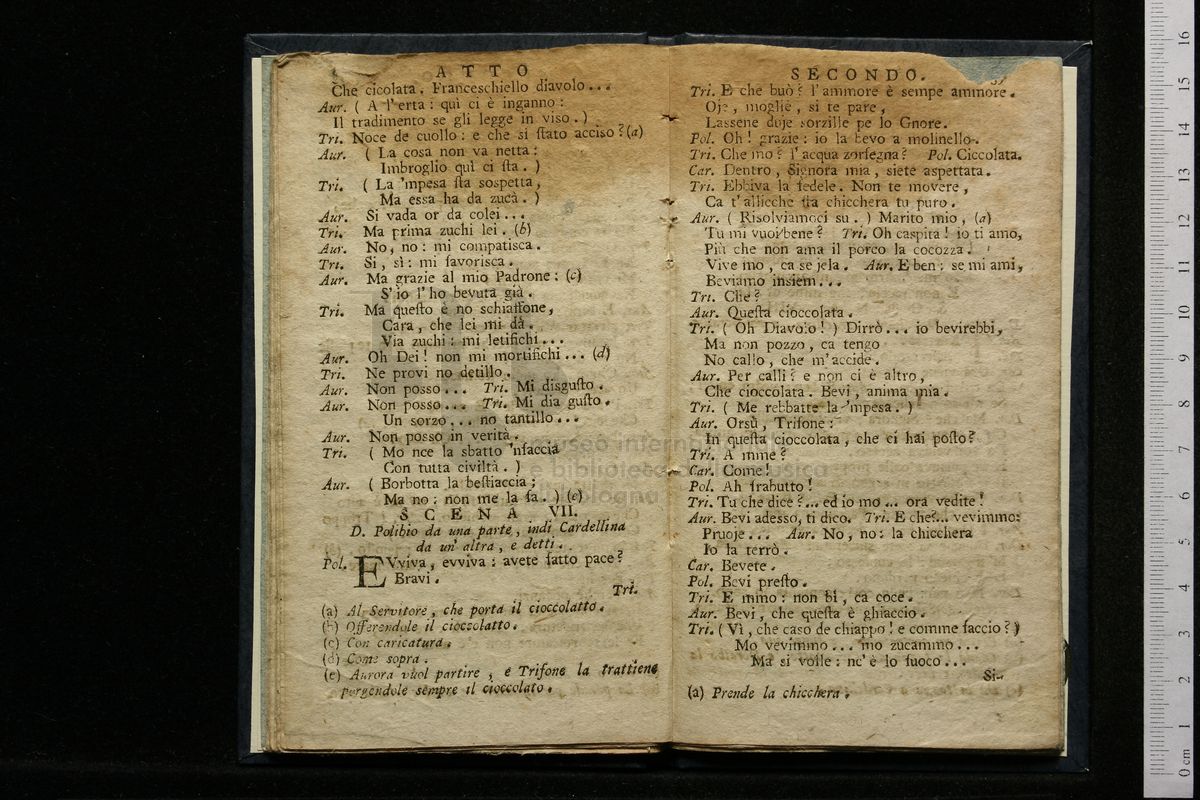 ATTO
Che cicolata. Franceschiello diavolo...
Aur. ( A l'erta: quì ci è inganno:
Il tradimento se gli legge in viso. )
Tri. Noce de cuollo: e che si ſtato acciso? (a)
Aur. ( La cosa non va netta:
Imbroglio quì ci ſta. )
Tri. ( La 'mpesa ſta sospetta,
Ma essa ha da zucà. )
Aur. Si vada or da colei...
Tri. Ma prima zuchi lei. (b)
Aur. No, no: mi compatisca.
Tri. Si, sì: mi favorisca.
Aur. Ma grazie al mio Padrone: (c)
S'io l'ho bevuta già.
Tri. Ma queſto è no schiaffone,
Cara, che lei mi dà.
Via zuchi: mi letifichi...
Aur. Oh Dei! non mi mortifichi... (d)
Tri. Ne provi no detillo.
Aur. Non posso... Tri. Mi disguſto.
Aur. Non posso... Tri. Mi dia guſto.
Un sorzo... no tantillo...
Aur. Non posso in verità.
Tri. ( Mo nce la sbatto 'nfaccia
Con tutta civiltà. )
Aur. ( Borbotta la beſtiaccia;
Ma no: non me la fa. ) (e)
SCENA VII.
D. Polibio da una parte, indi Cardellina
da un' altra, e detti.
Pol. EVviva, evviva: avete fatto pace?
Bravi.
Tri.
(a) Al Servitore, che porta il cioccolatto.
(b) Offerendole il cioccolatto.
(c) Con caricatura.
(d) Come sopra.
(e) Aurora vuol partire, e Trifone la trattiene
porgendole sempre il cioccolato.
SECONDO.
Tri. E che buò? l'ammore è sempe ammore.
Oje, mogliè, si te pare,
Lassene duje sorzille pe lo Gnore.
Pol. Oh! grazie: io la bevo a molinello.
Tri. Che mo? l'acqua zorfegna? Pol. Ciccolata.
Car. Dentro, Signora mia, siete aspettata.
Tri. Ebbiva la fedele. Non te movere,
Ca t'allicche ſta chicchera tu puro.
Aur. ( Risolviamoci su. ) Marito mio, (a)
Tu mi vuoi bene? Tri. Oh caspita! io ti amo,
Più che non ama il porco la cocozza.
Vive mo, ca se jela. Aur. E ben: se mi ami,
Beviamo insiem...
Tri. Che?
Aur. Queſta cioccolata.
Tri. ( Oh Diavolo! ) Dirrò... io bevirebbi,
Ma non pozzo, ca tengo
No callo, che m'accide.
Aur. Per calli? e non ci è altro,
Che cioccolata. Bevi, anima mia.
Tri. ( Me rebbatte la 'mpesa. )
Aur. Orsù, Trifone:
In queſta cioccolata, che ci hai poſto?
Tri. A mme?
Car. Come!
Pol. Ah frabutto!
Tri. Tu che dice?... ed io mo... ora vedite!
Aur. Bevi adesso, ti dico. Tri. E che?... vevimmo:
Pruoje... Aur. No, no: la chicchera
Io la terrò.
Car. Bevete.
Pol. Bevi preſto.
Tri. E mmo: non bì, ca coce.
Aur. Bevi, che queſta è ghiaccio.
Tri. ( Vì, che caso de chiappo! e comme faccio? )
Mo vevimmo... mo zucammo...
Ma si volle: nc'è lo fuoco...
Si-
(a) Prende la chicchera.
museo internazionale
e biblioteca della musica
di bologna
0 cm 1 2 3 4 5 6 7 8 9 10 11 12 13 14 15 16